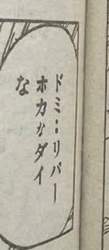 ドミ：リバー
ホカなダイ
な